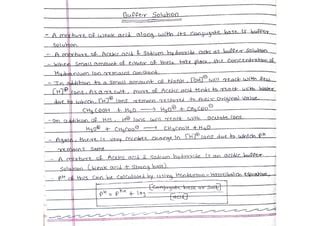 Buffer Solution
- A mixture of weak acid along with its conjugate base is buffer
solution.
- A mixture of Acetic acid & Sodium hydroxide acts as buffer solution
- When small amount of of base take place, the concentration of
Hydronium ion remains constant.
- In addition to a small amount of water, [OH]⊖ will react with few
[H]⊕ ions. As a result, more of Acetic acid tends to react with water
due to which, [H]⊕ ions remain restored to their original value.
CH₃COOH + H₂O ⟶ H₃O⊕ + CH₃COO⊖
- In addition of this, H⊕ ions will react with acetate ions.
H₃O⊕ + CH₃COO⊖ ⟶ CH₃COOH + H₂O
- Again, there is very minute change in [H]⊕ ions due to which pH
remains same.
- A mixture of Acetic acid & sodium hydroxide is an acidic buffer
solution (weak acid & strong base).
- pH of this can be calculated by using Henderson - Hasselbalch equation,
pH = pKa + log [Conjugate base or salt]
[Acid]